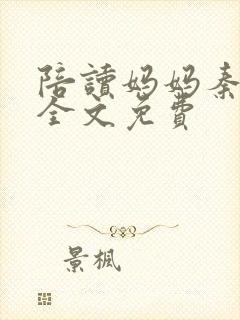 陪讀媽媽秦
全文免費
景楓